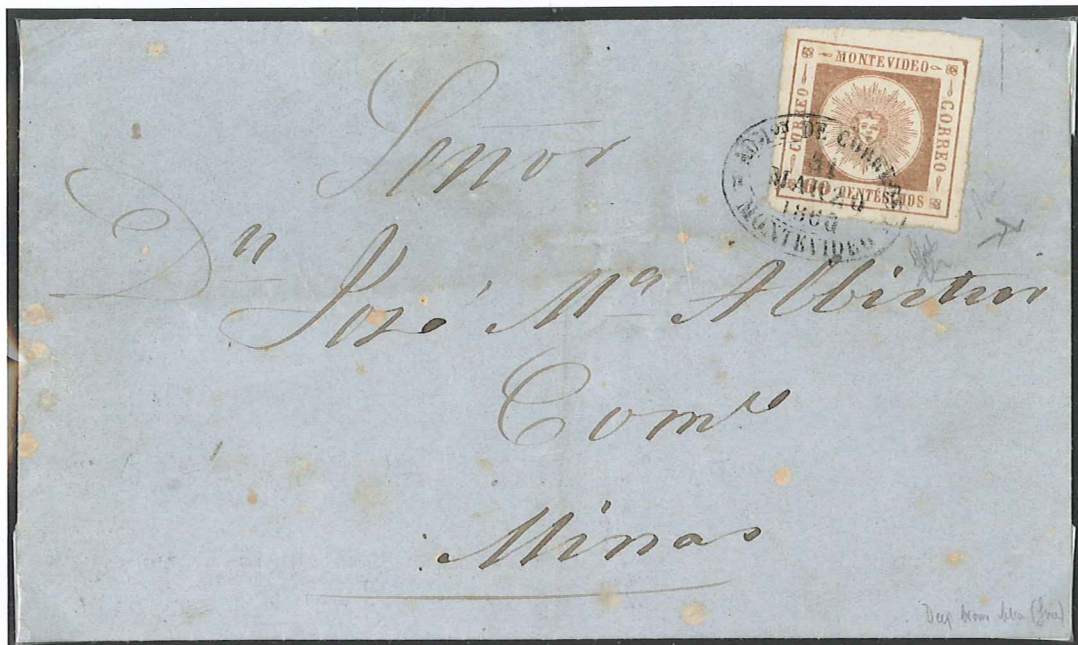 MONTEVIDEO
CORREO
CORREO
100 CENTÉSIMOS
ADMON DE CORREOS
31
MARZO
1860
MONTEVIDEO
Señor
Dn José Ma Albistur
Come
Minas
Deep brown